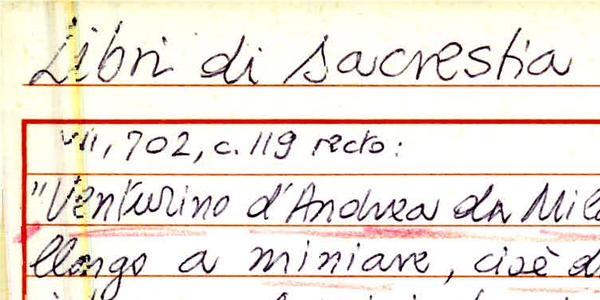 Libri di sacrestia
VII, 702, c. 119 recto:
"Venturino d'Andrea da Mila
llongo a miniare, cioè d